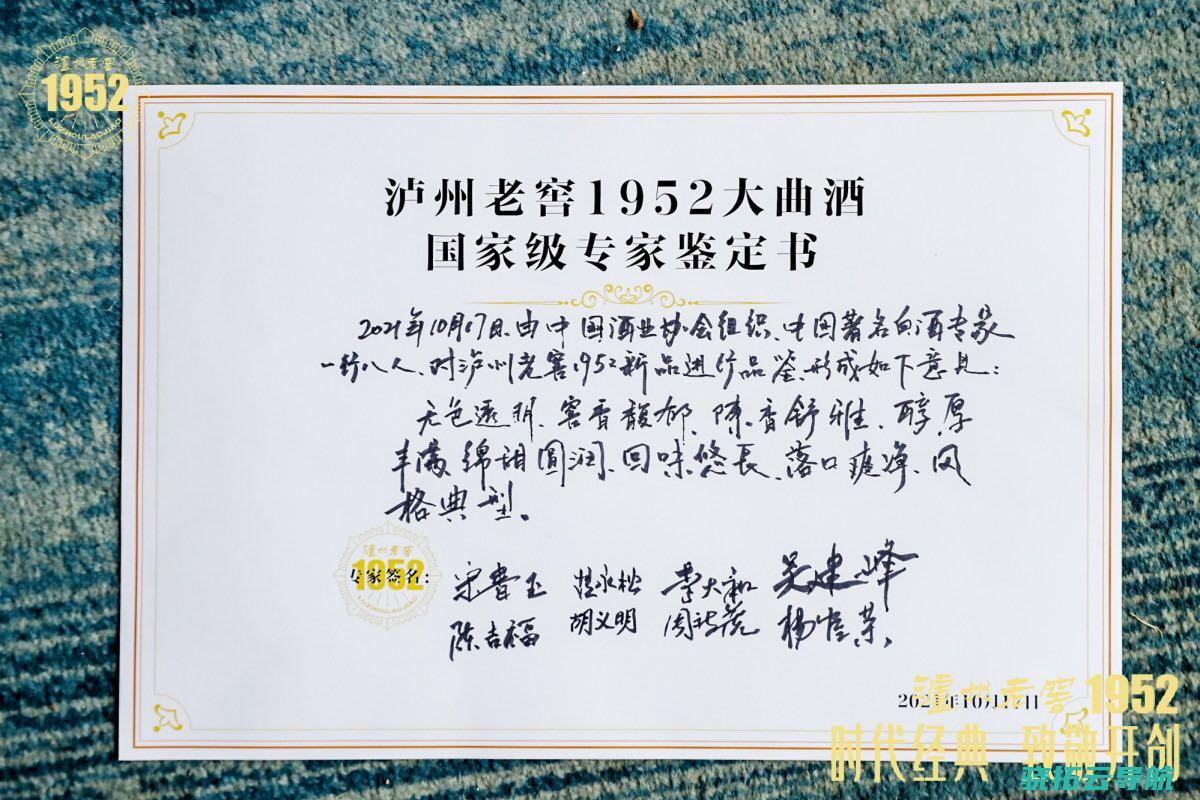 泸州老窖
1952
LUZHOULAOJIAO
泸州老窖1952大曲酒
国家级专家鉴定书
2021年10月17日,由中国酒业协会组织、中国著名白酒专家
一行八人、对泸州老窖1952新品进行品鉴,形成如下意见:
无色透明、窖香馥郁、陈香舒雅、醇厚
丰满、绵甜圆润、回味悠长、落口爽净、风
格典型。
泸州老窖
1952
LUZHOULAOJIAO
专家签名:
宋书玉 沈永松 李大和 吴建峰
陈吉福 胡义明 杨官荣
2021年10月17日
泸州老窖 1952
时代经典 致敬开创
骁拓云导航